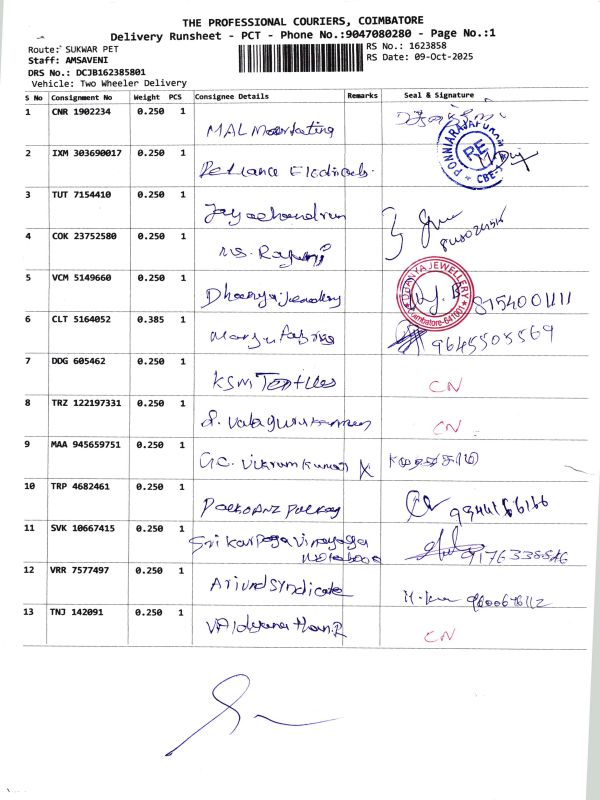 THE PROFESSIONAL COURIERS, COIMBATORE
Delivery Runsheet - PCT - Phone No.:9047080280 - Page No.:1
Route: SUKWAR PET
RS No.: 1623858
Staff: AMSAVENI
RS Date: 09-Oct-2025
DRS No.: DCJB162385801
Vehicle: Two Wheeler Delivery
S No Consignment No Weight PCS Consignee Details Remarks Seal & Signature
1 CNR 1902234 0.250 1
MAL
2 IXM 303690017 0.250 1
Reliance Electricals
PONNIARAJAPURAM
RE
CBE-1
3 TUT 7154410 0.250 1
Jayachandran
4 COK 23752580 0.250 1
N.S.
5 VCM 5149660 0.250 1
Dhanya Jewellery
DHANYA JEWELLERY
Coimbatore-641001
8754001111
6 CLT 5164052 0.385 1
9645505569
7 DDG 605462 0.250 1
KSM Textiles
CN
8 TRZ 122197331 0.250 1
CN
9 MAA 945659751 0.250 1
G.C. Vikram Kumar X
10 TRP 4682461 0.250 1
11 SVK 10667415 0.250 1
Sri Karpaga Vinayaga
12 VRR 7577497 0.250 1
Arivud Syndicate
13 TNJ 142091 0.250 1
Vaidyanathan.R
CN